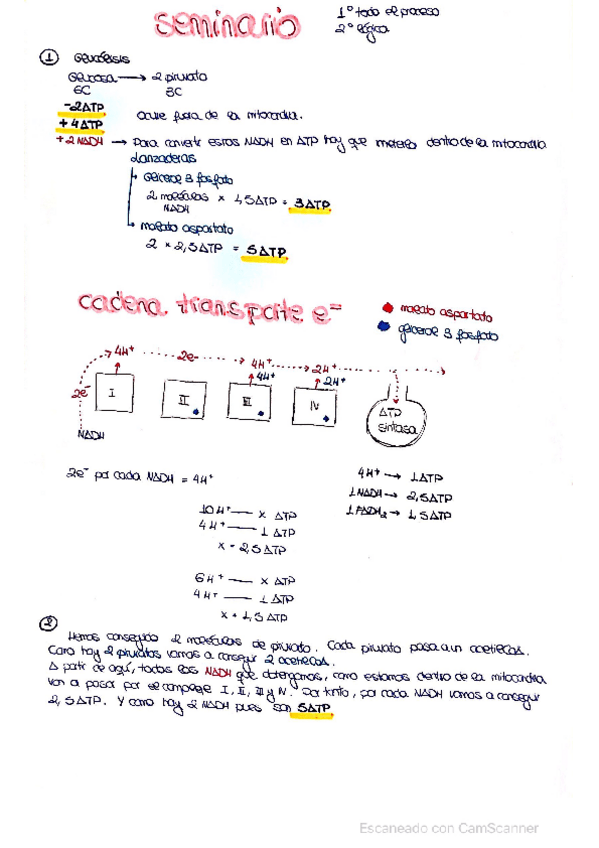 seminario
1º todo el proceso
2º lógica
① Glucólisis
Glucosa → 2 piruvato
6C 3C
-2ATP
+4ATP
Ocurre fuera de la mitocondria.
+2NADH → Para convertir estos NADH en ATP hay que meterlo dentro de la mitocondria
Lanzaderas
glicerol 3 fosfato
2 moléculas × 1,5ATP = 3ATP
NADH
malato aspartato
2 × 2,5ATP = 5ATP
cadena transporte e-
malato aspartato
glicerol 3 fosfato
4H+ 2e- 4H+ 2H+
4H+ 2H+
2e- I II III IV ATP
sintasa
NADH
2e- por cada NADH = 4H+
4H+ → 1ATP
1NADH → 2,5ATP
1FADH2 → 1,5ATP
10H+ — x ATP
4H+ — 1 ATP
x = 2,5ATP
6H+ — x ATP
4H+ — 1 ATP
x = 1,5ATP
②
Hemos conseguido 2 moléculas de piruvato. Cada piruvato pasa a un acetilCoA.
Como hay 2 piruvatos vamos a conseguir 2 acetilCoA.
A partir de aquí, todos los NADH que obtengamos, como estamos dentro de la mitocondria
van a pasar por el complejo I, II, III y IV. Por tanto, por cada NADH vamos a conseguir
2,5ATP. Y como hay 2 NADH pues son 5ATP
Escaneado con CamScanner